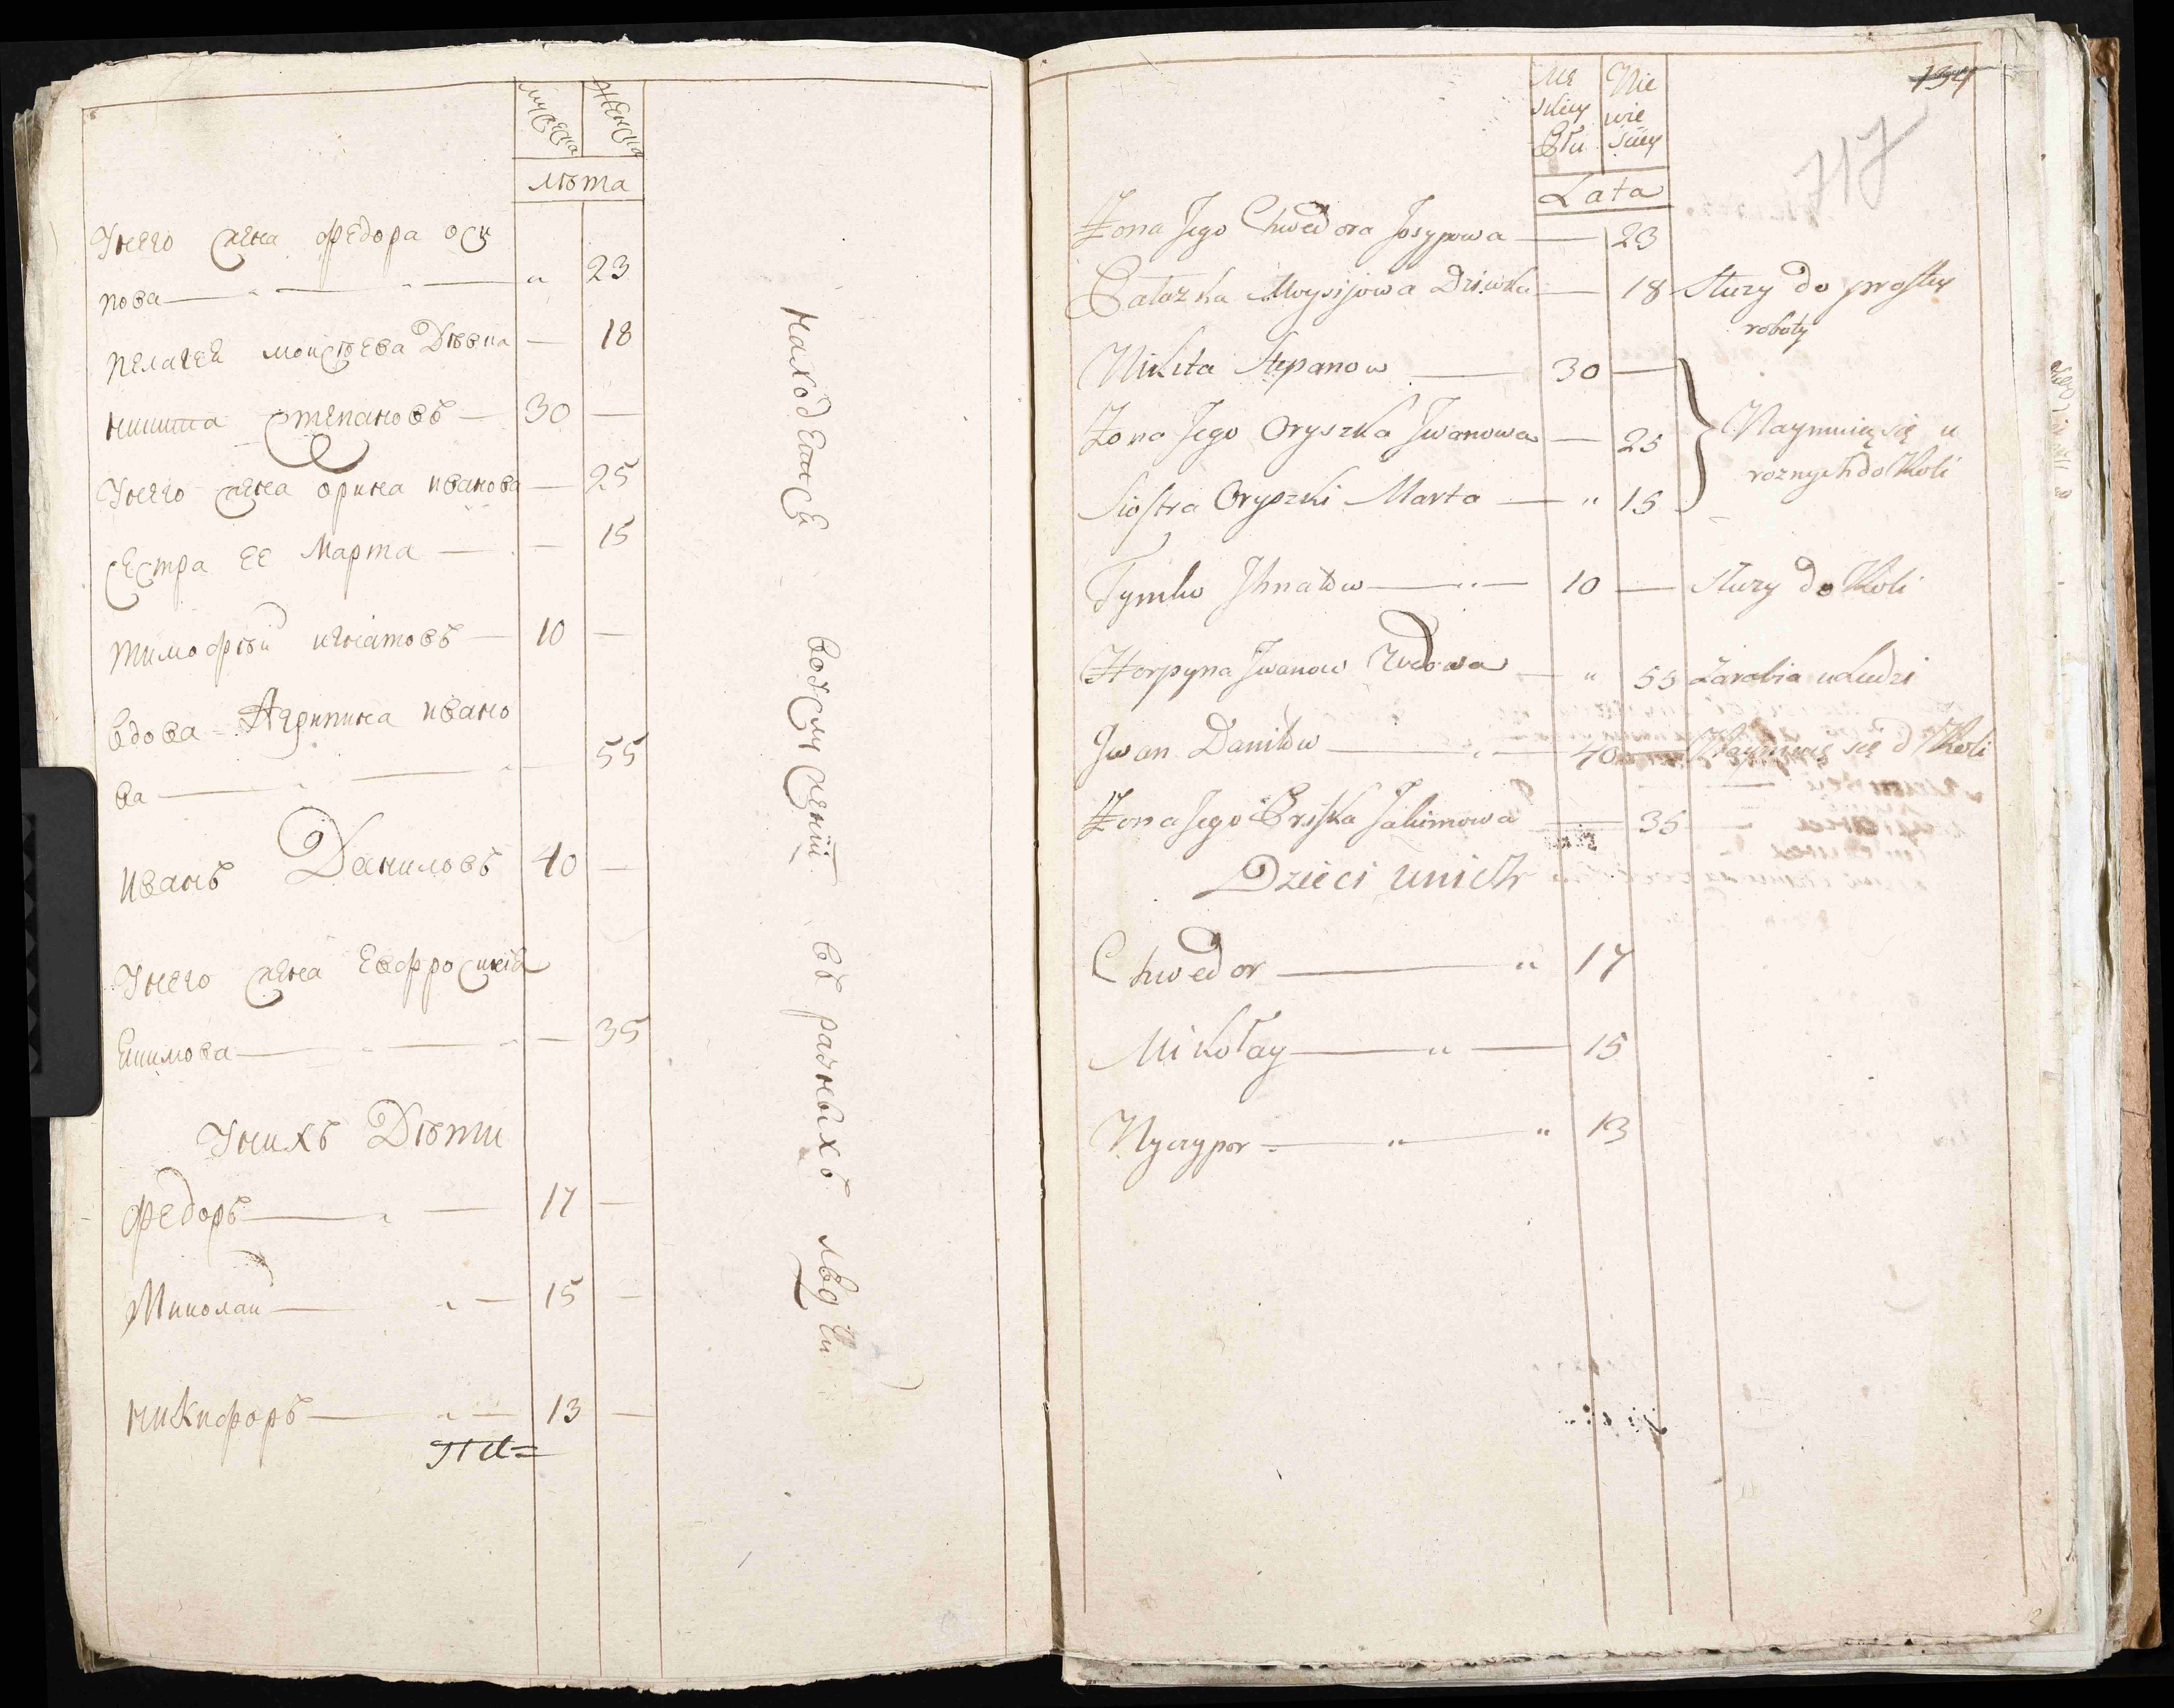 мужеска
женска
лѣта
Унего жена федора оси
пова — „ 23
пелагея моисѣева Дѣвка — 18
никита степановъ — 30 —
Унего жена орина иванова — 25
сестра ее Марта — 15
тимофѣй игнатовъ — 10 —
вдова Агрипина ивано
ва — 55
иванъ Даниловъ 40 —
Унего жена Евфросинія
Екимова — 35
Унихъ Дѣти
федоръ — 17 —
Миколаи — „ — 15 —
никифоръ — „ — 13 —
находятся в услуженіи въ разныхъ людей
134
717
Mę
skiey
Płci
Nie
wie
sciey
Lata
Żona Jego Chwedora Josypowa — 23
Pałazka Moysijowa Dziwka — 18 Służy do prostey
roboty
Nikita Stepanow — 30 —
Żona Jego Oryszka Jwanowa — 25
Naymuią się u
roznych do Roli
Siostra Oryszki Marta — „ 15
Tymko Jhnatow — 10 — Służy do Roli
Horpyna Jwanow Wdowa — „ 55 Zarabia u Ludzi
Jwan Daniłow — 40 — Naymuię się d Roli
Żona Jego Priska Jakimowa — 35
Dzieci unich
Chwedor — „ 17
Mikołay — „ — 15
Nyczypor — „ — „ 13